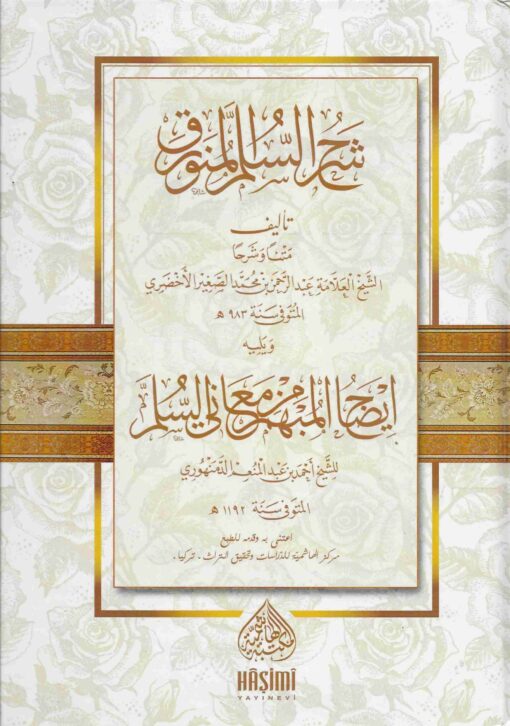 شرح السلم المنورق
تأليف
مَتْنًا وَشَرْحًا
الشيخ العلامة عبد الرحمن بن محمد الصغير الأخضري
المتوفى سنة ٩٨٣ هـ
ويليه
إيضاح المبهم من معاني السلم
للشيخ أحمد بن عبد المنعم الدمنهوري
المتوفى سنة ١١٩٢ هـ
اعتنى به وقدمه للطبع
مركز الهاشمية للدراسات وتحقيق التراث - تركيا.
المكتبة الهاشمية
HÂŞİMÎ
YAYINEVİ